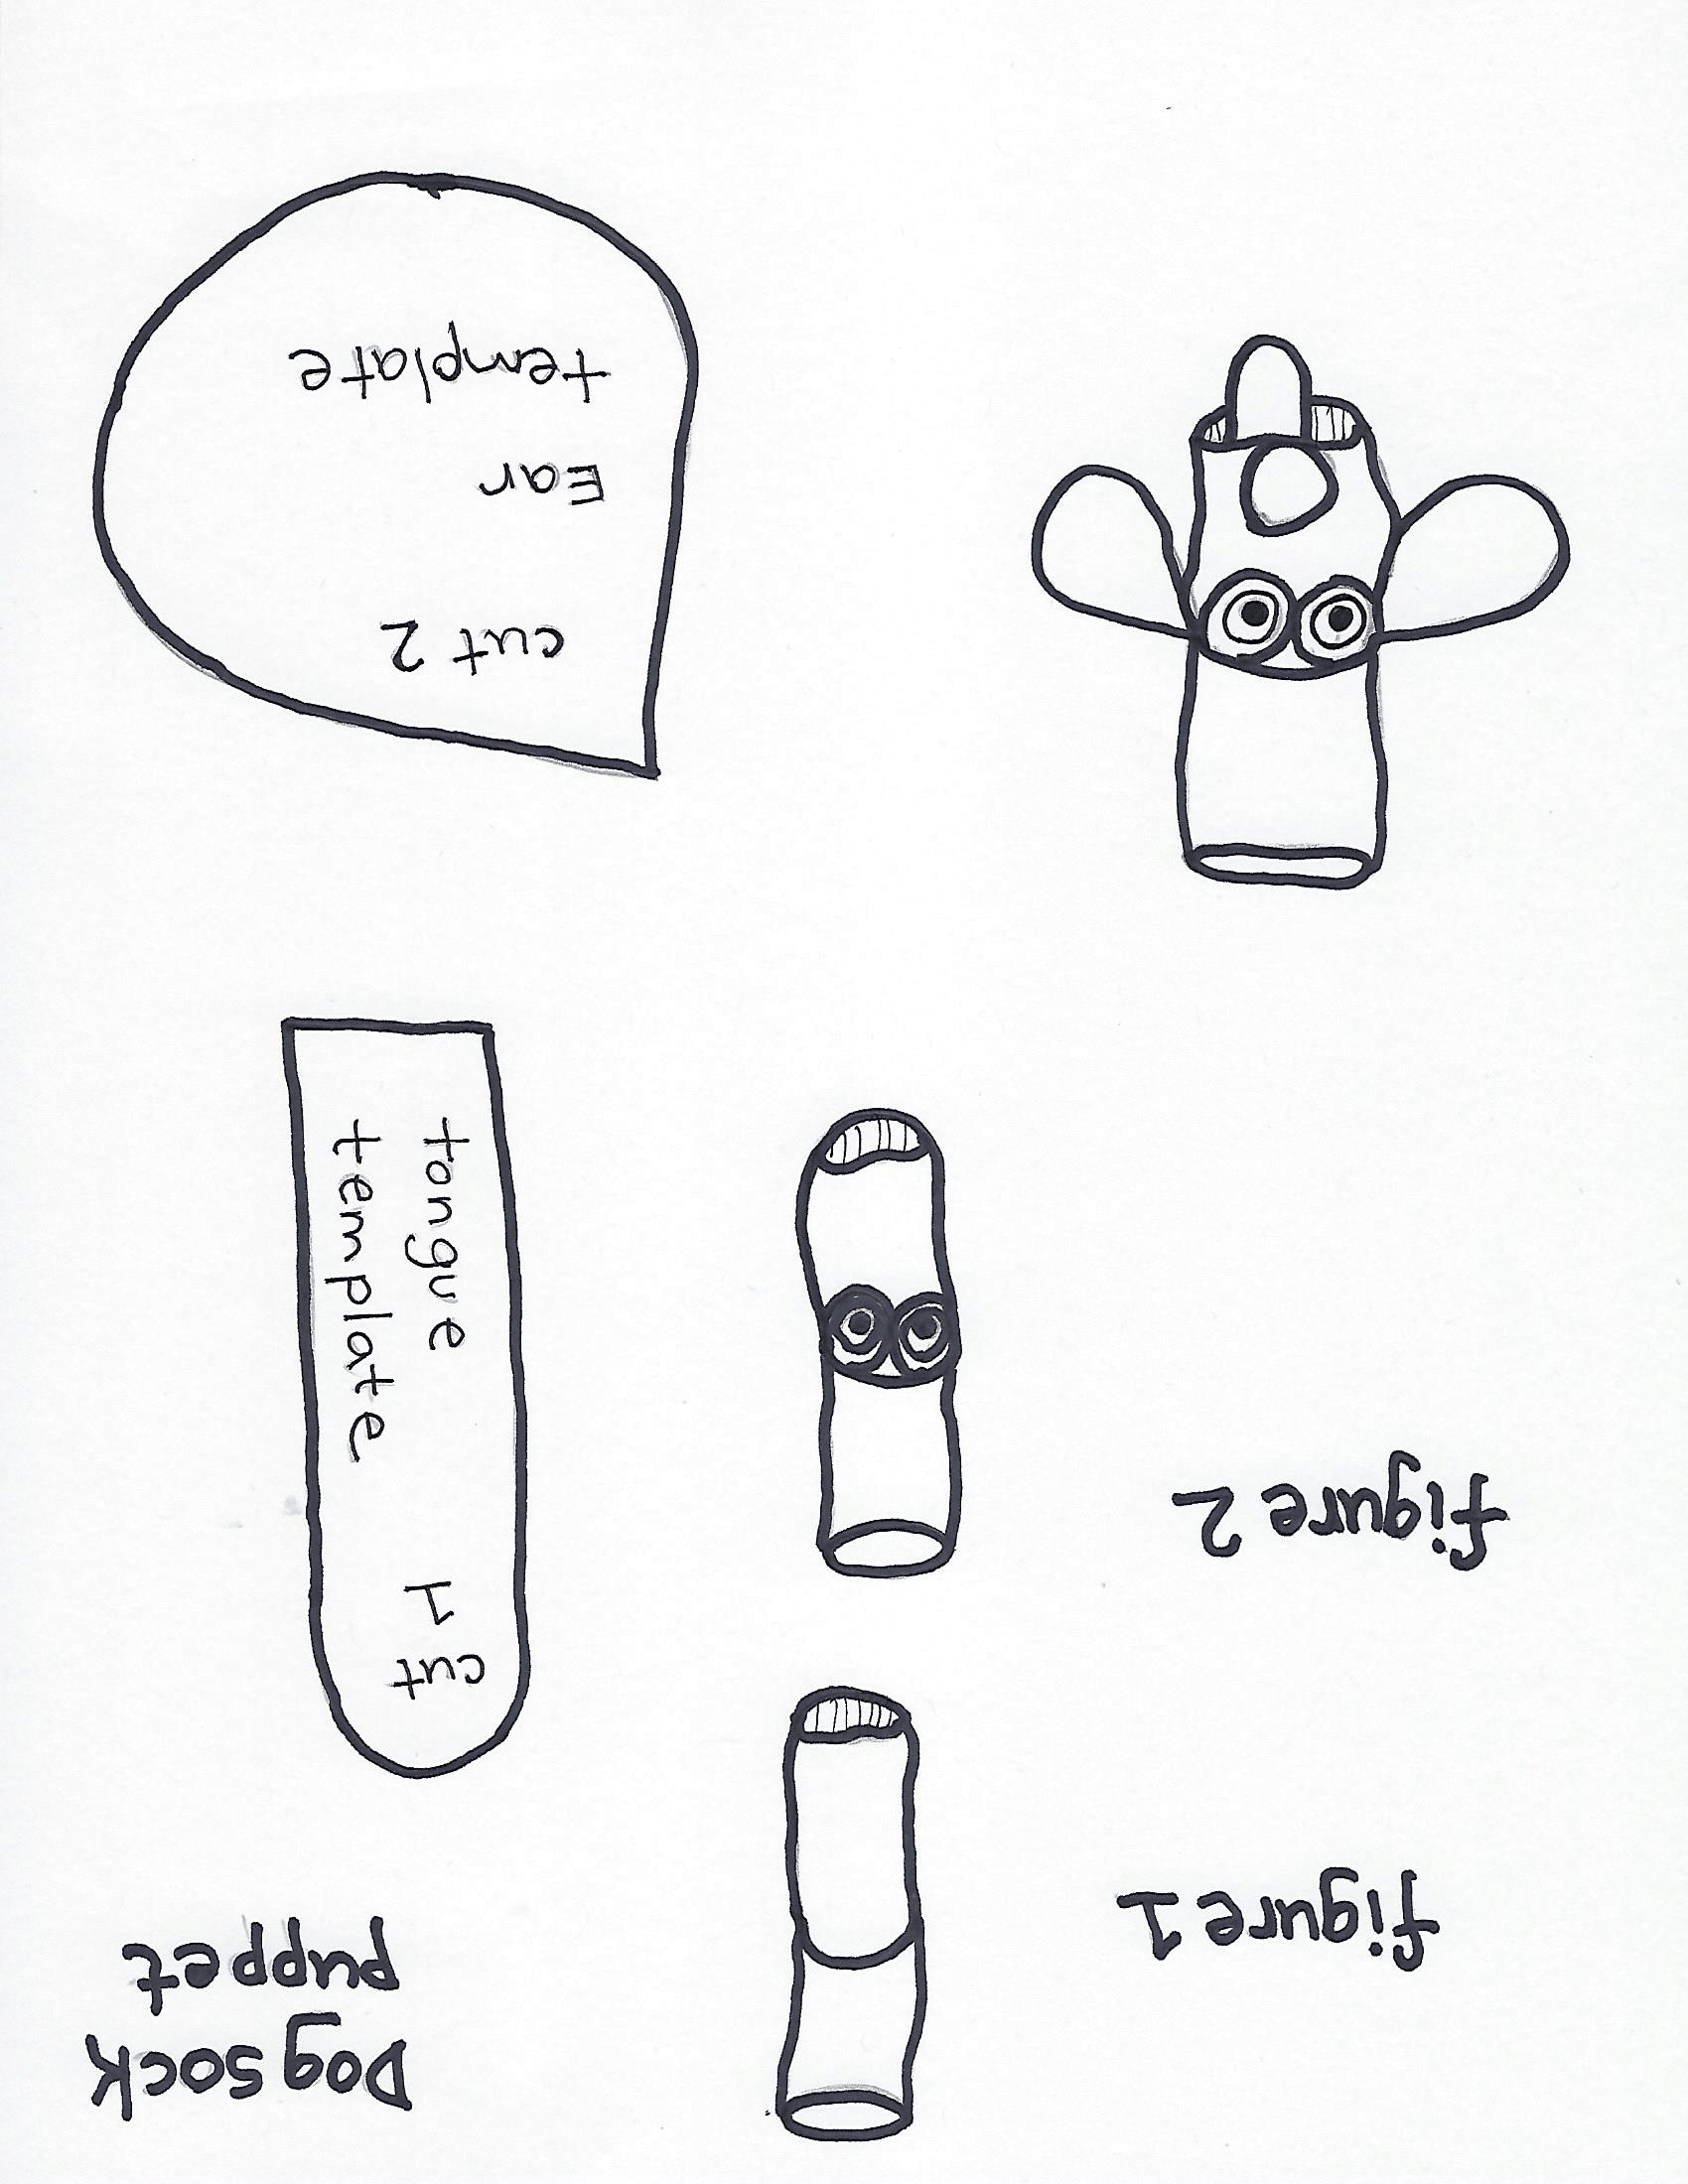 Dog sock
puppet
figure 1
figure 2
cut
1
tongue
template
cut 2
Ear
template